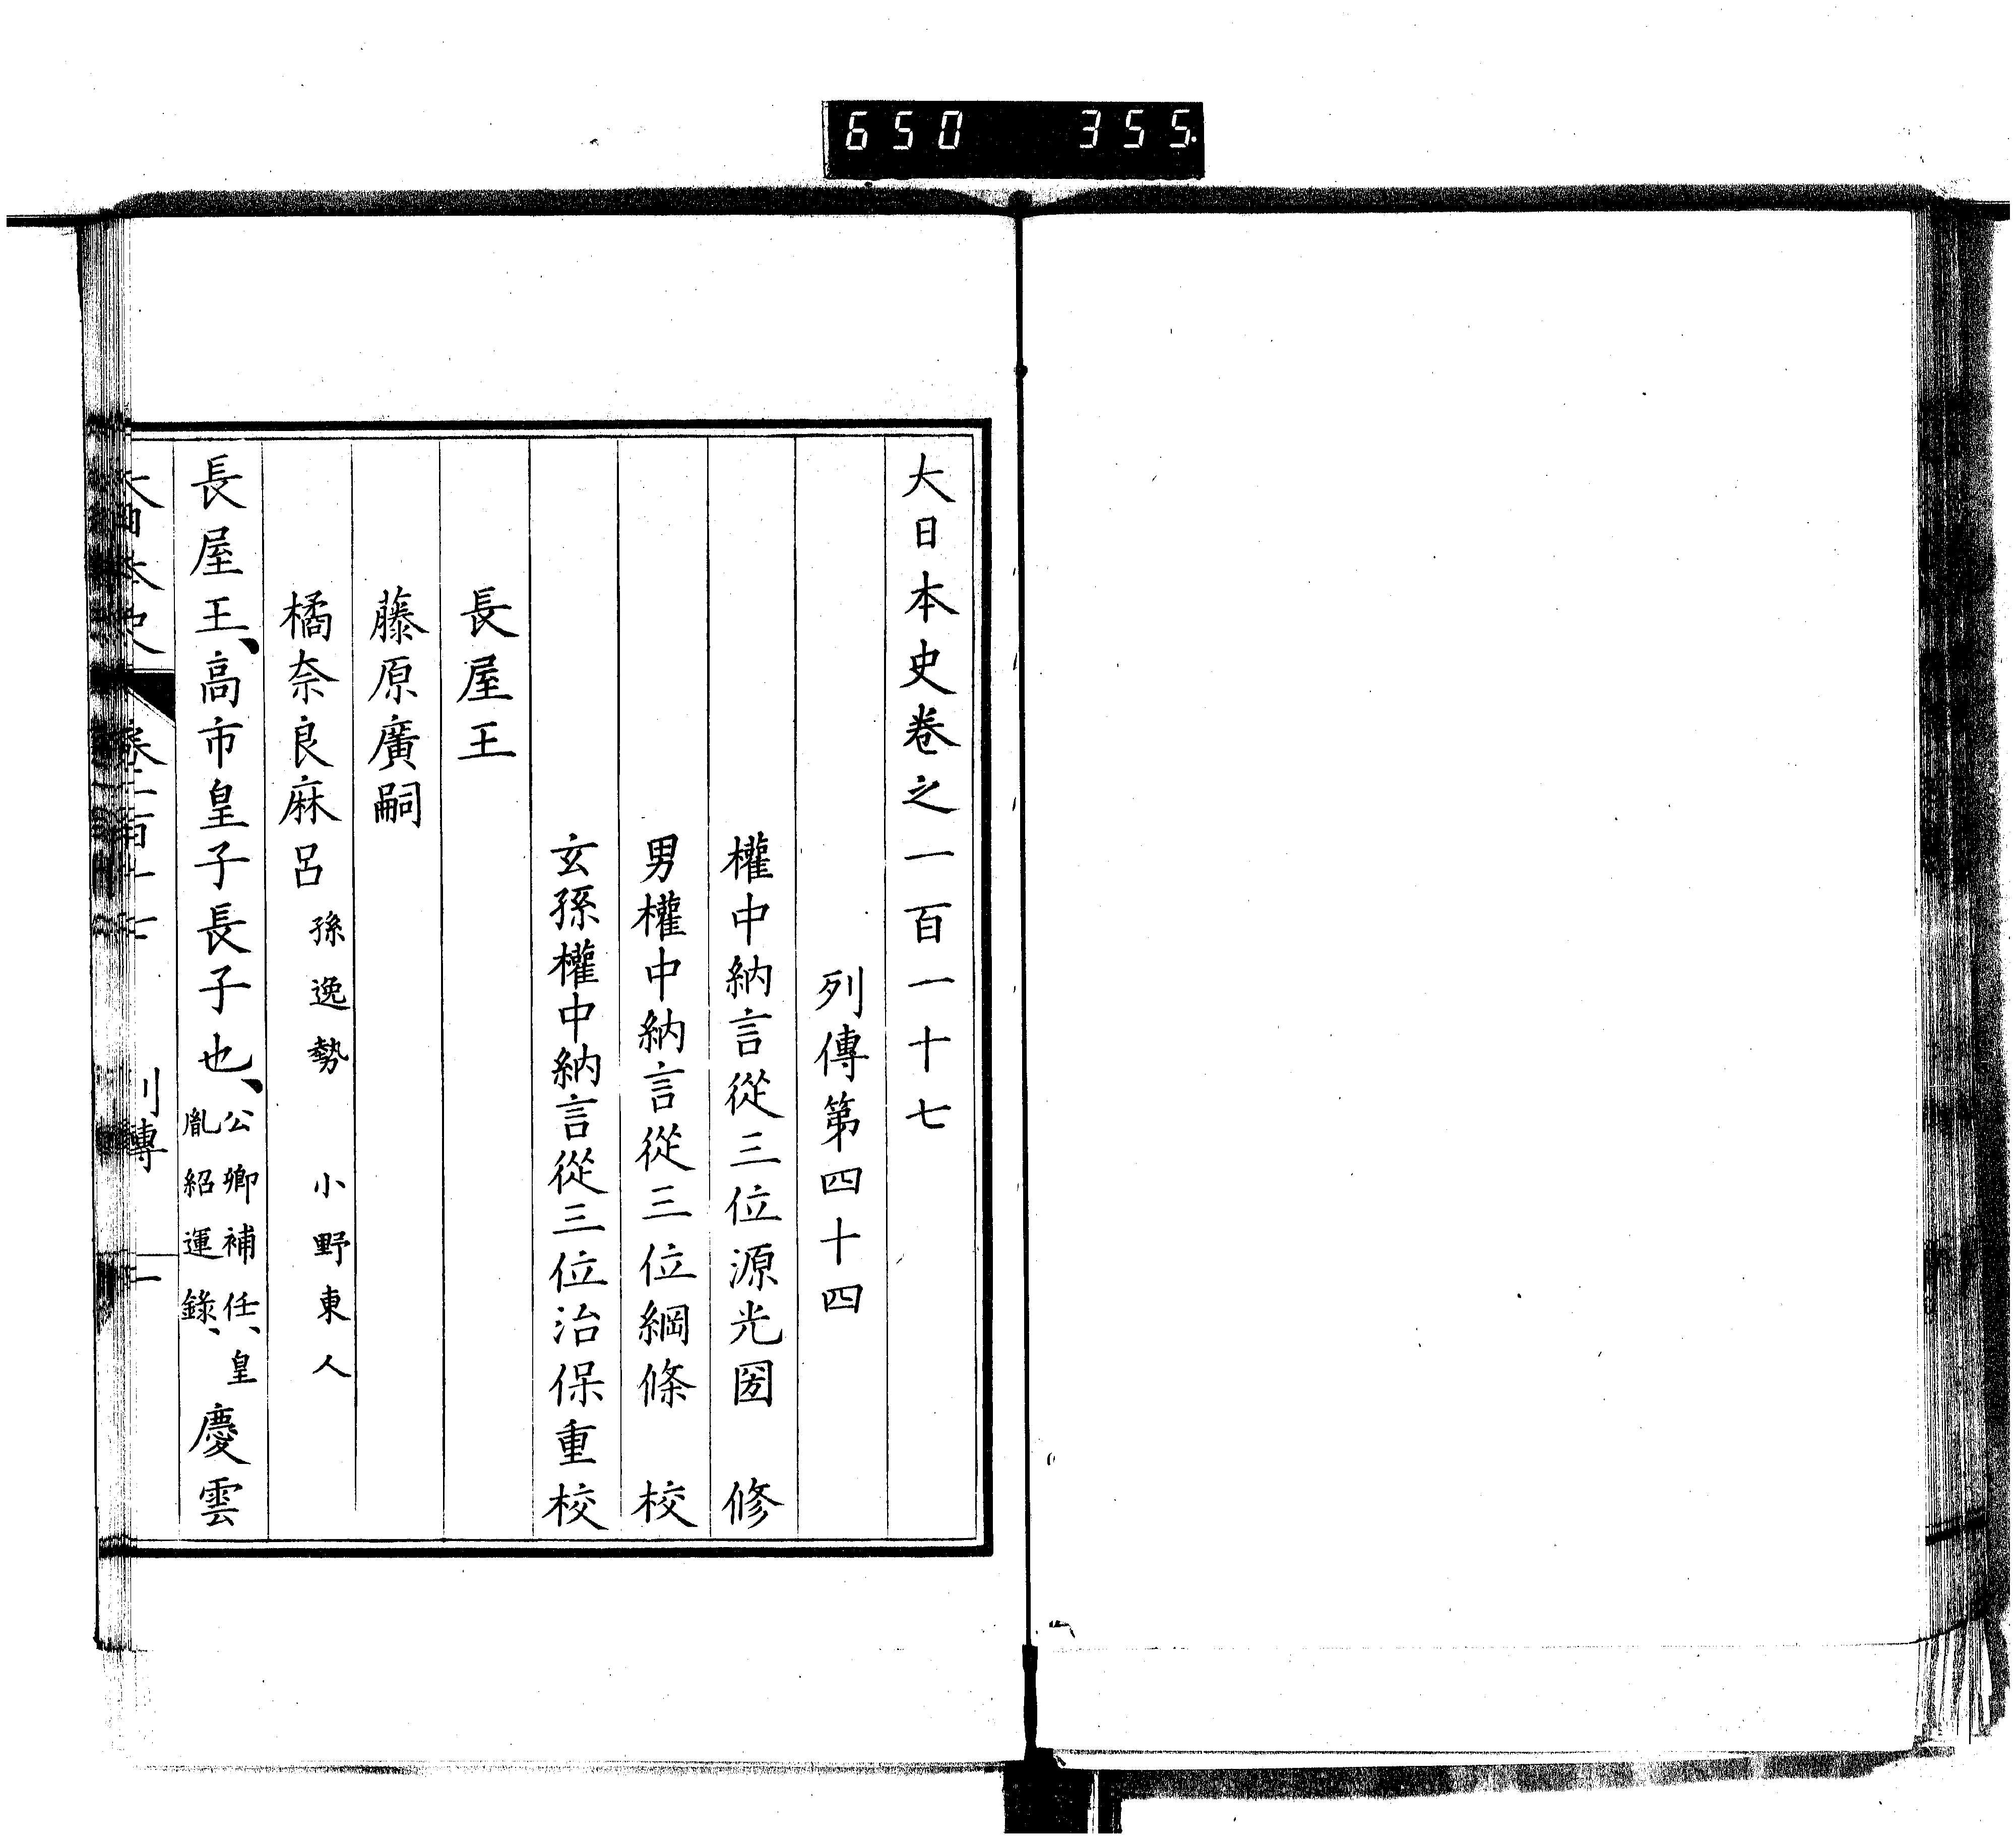 650 355.
大日本史卷之一百一十七
列傳第四十四
權中納言從三位源光圀 修
男權中納言從三位綱條 校
玄孫權中納言從三位治保重校
長屋王
藤原廣嗣
橘奈良麻呂 孫逸勢 小野東人
長屋王、高市皇子長子也、公卿補任、皇胤紹運錄、慶雲